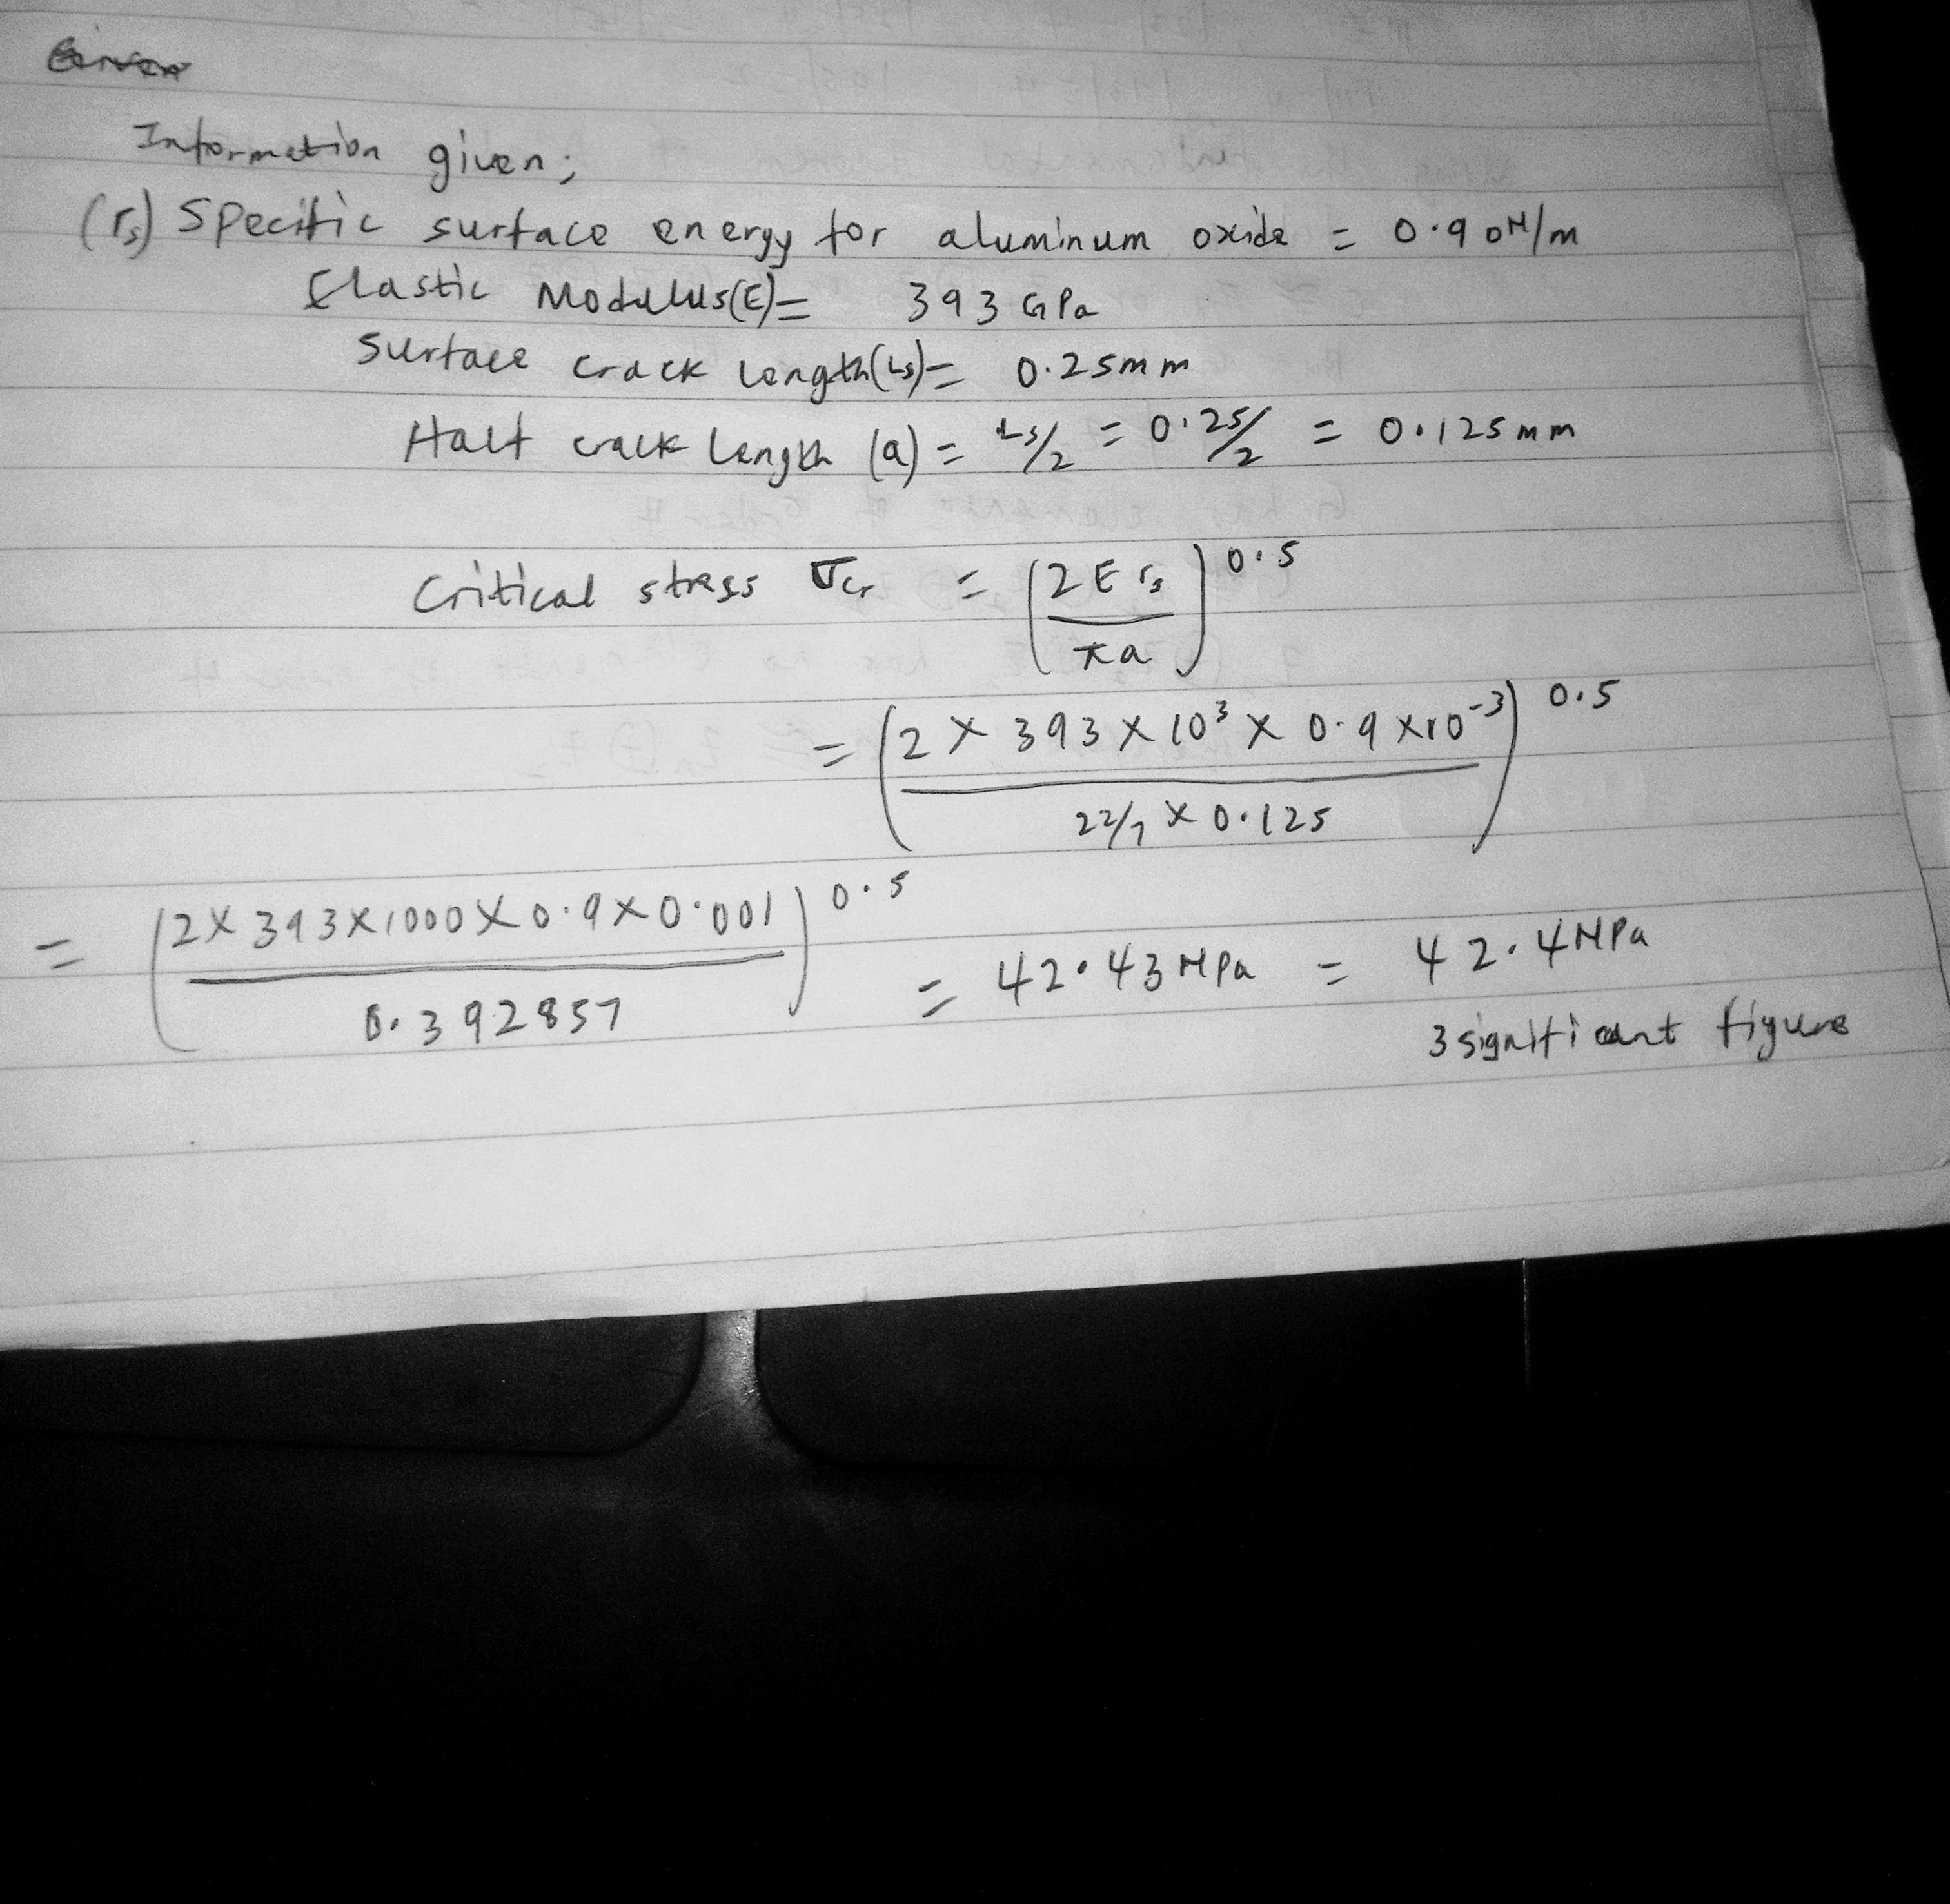 Given
Information given;
(rs) Specific surface energy for aluminum oxide = 0.90N/m
Elastic Modulus(E)= 393 GPa
Surface crack Length(Ls)= 0.25mm
Half crack Length (a) = Ls/2 = 0.25/2 = 0.125mm
Critical stress σcr = (2E rs / πa)^0.5
= (2 × 393 × 10³ × 0.9 × 10⁻³ / 22/7 × 0.125)^0.5
= (2 × 393 × 1000 × 0.9 × 0.001 / 0.392857)^0.5 = 42.43 MPa = 42.4 MPa
3 significant figure